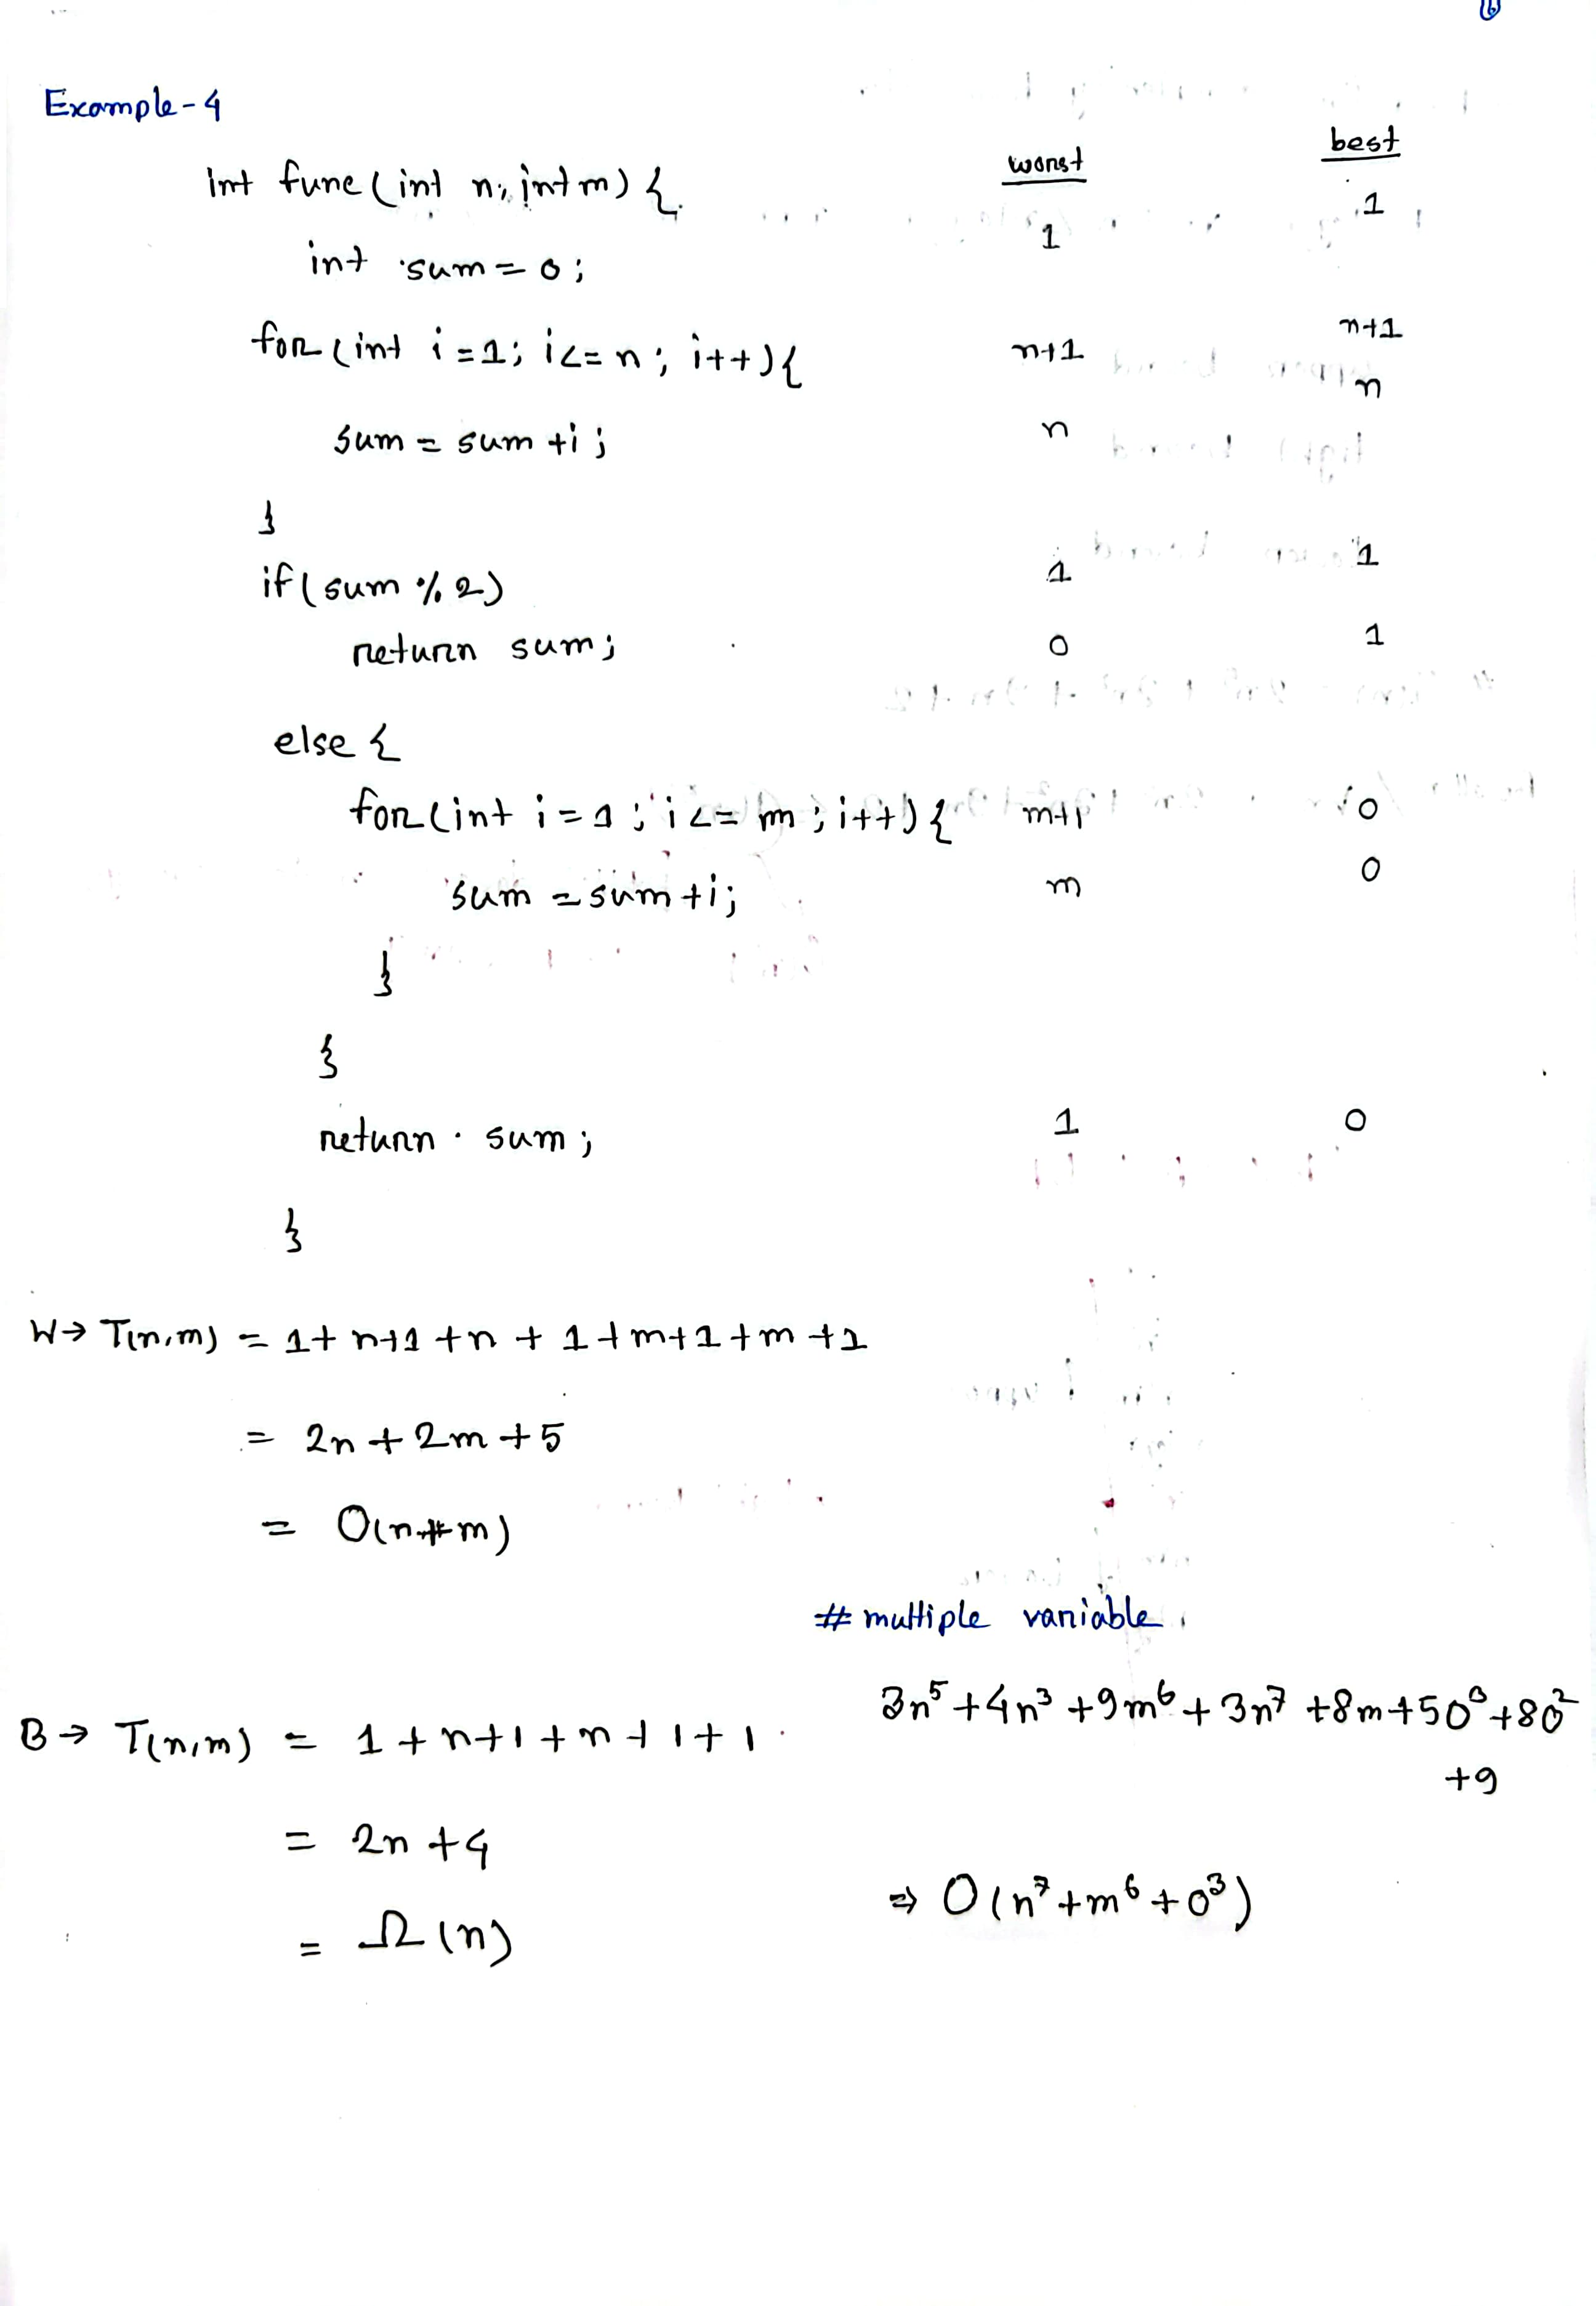 6
Example-4
worst best
int func(int n, int m) {
1 1
int sum = 0;
for (int i = 1; i <= n; i++) { n+1 n+1
sum = sum + i; n n
}
if (sum % 2) 1 1
return sum; 0 1
else {
for (int i = 1; i <= m; i++) { m+1 0
sum = sum + i; m 0
}
}
return sum; 1 0
}
W → T(n,m) = 1 + n+1 + n + 1 + m+1 + m + 1
= 2n + 2m + 5
= O(n+m)
# multiple variable
3n⁵ + 4n³ + 9m⁶ + 3n⁷ + 8m + 5o³ + 8o²
+9
B → T(n,m) = 1 + n+1 + n + 1 + 1
= 2n + 4
⇒ O(n⁷ + m⁶ + o³)
= Ω(n)